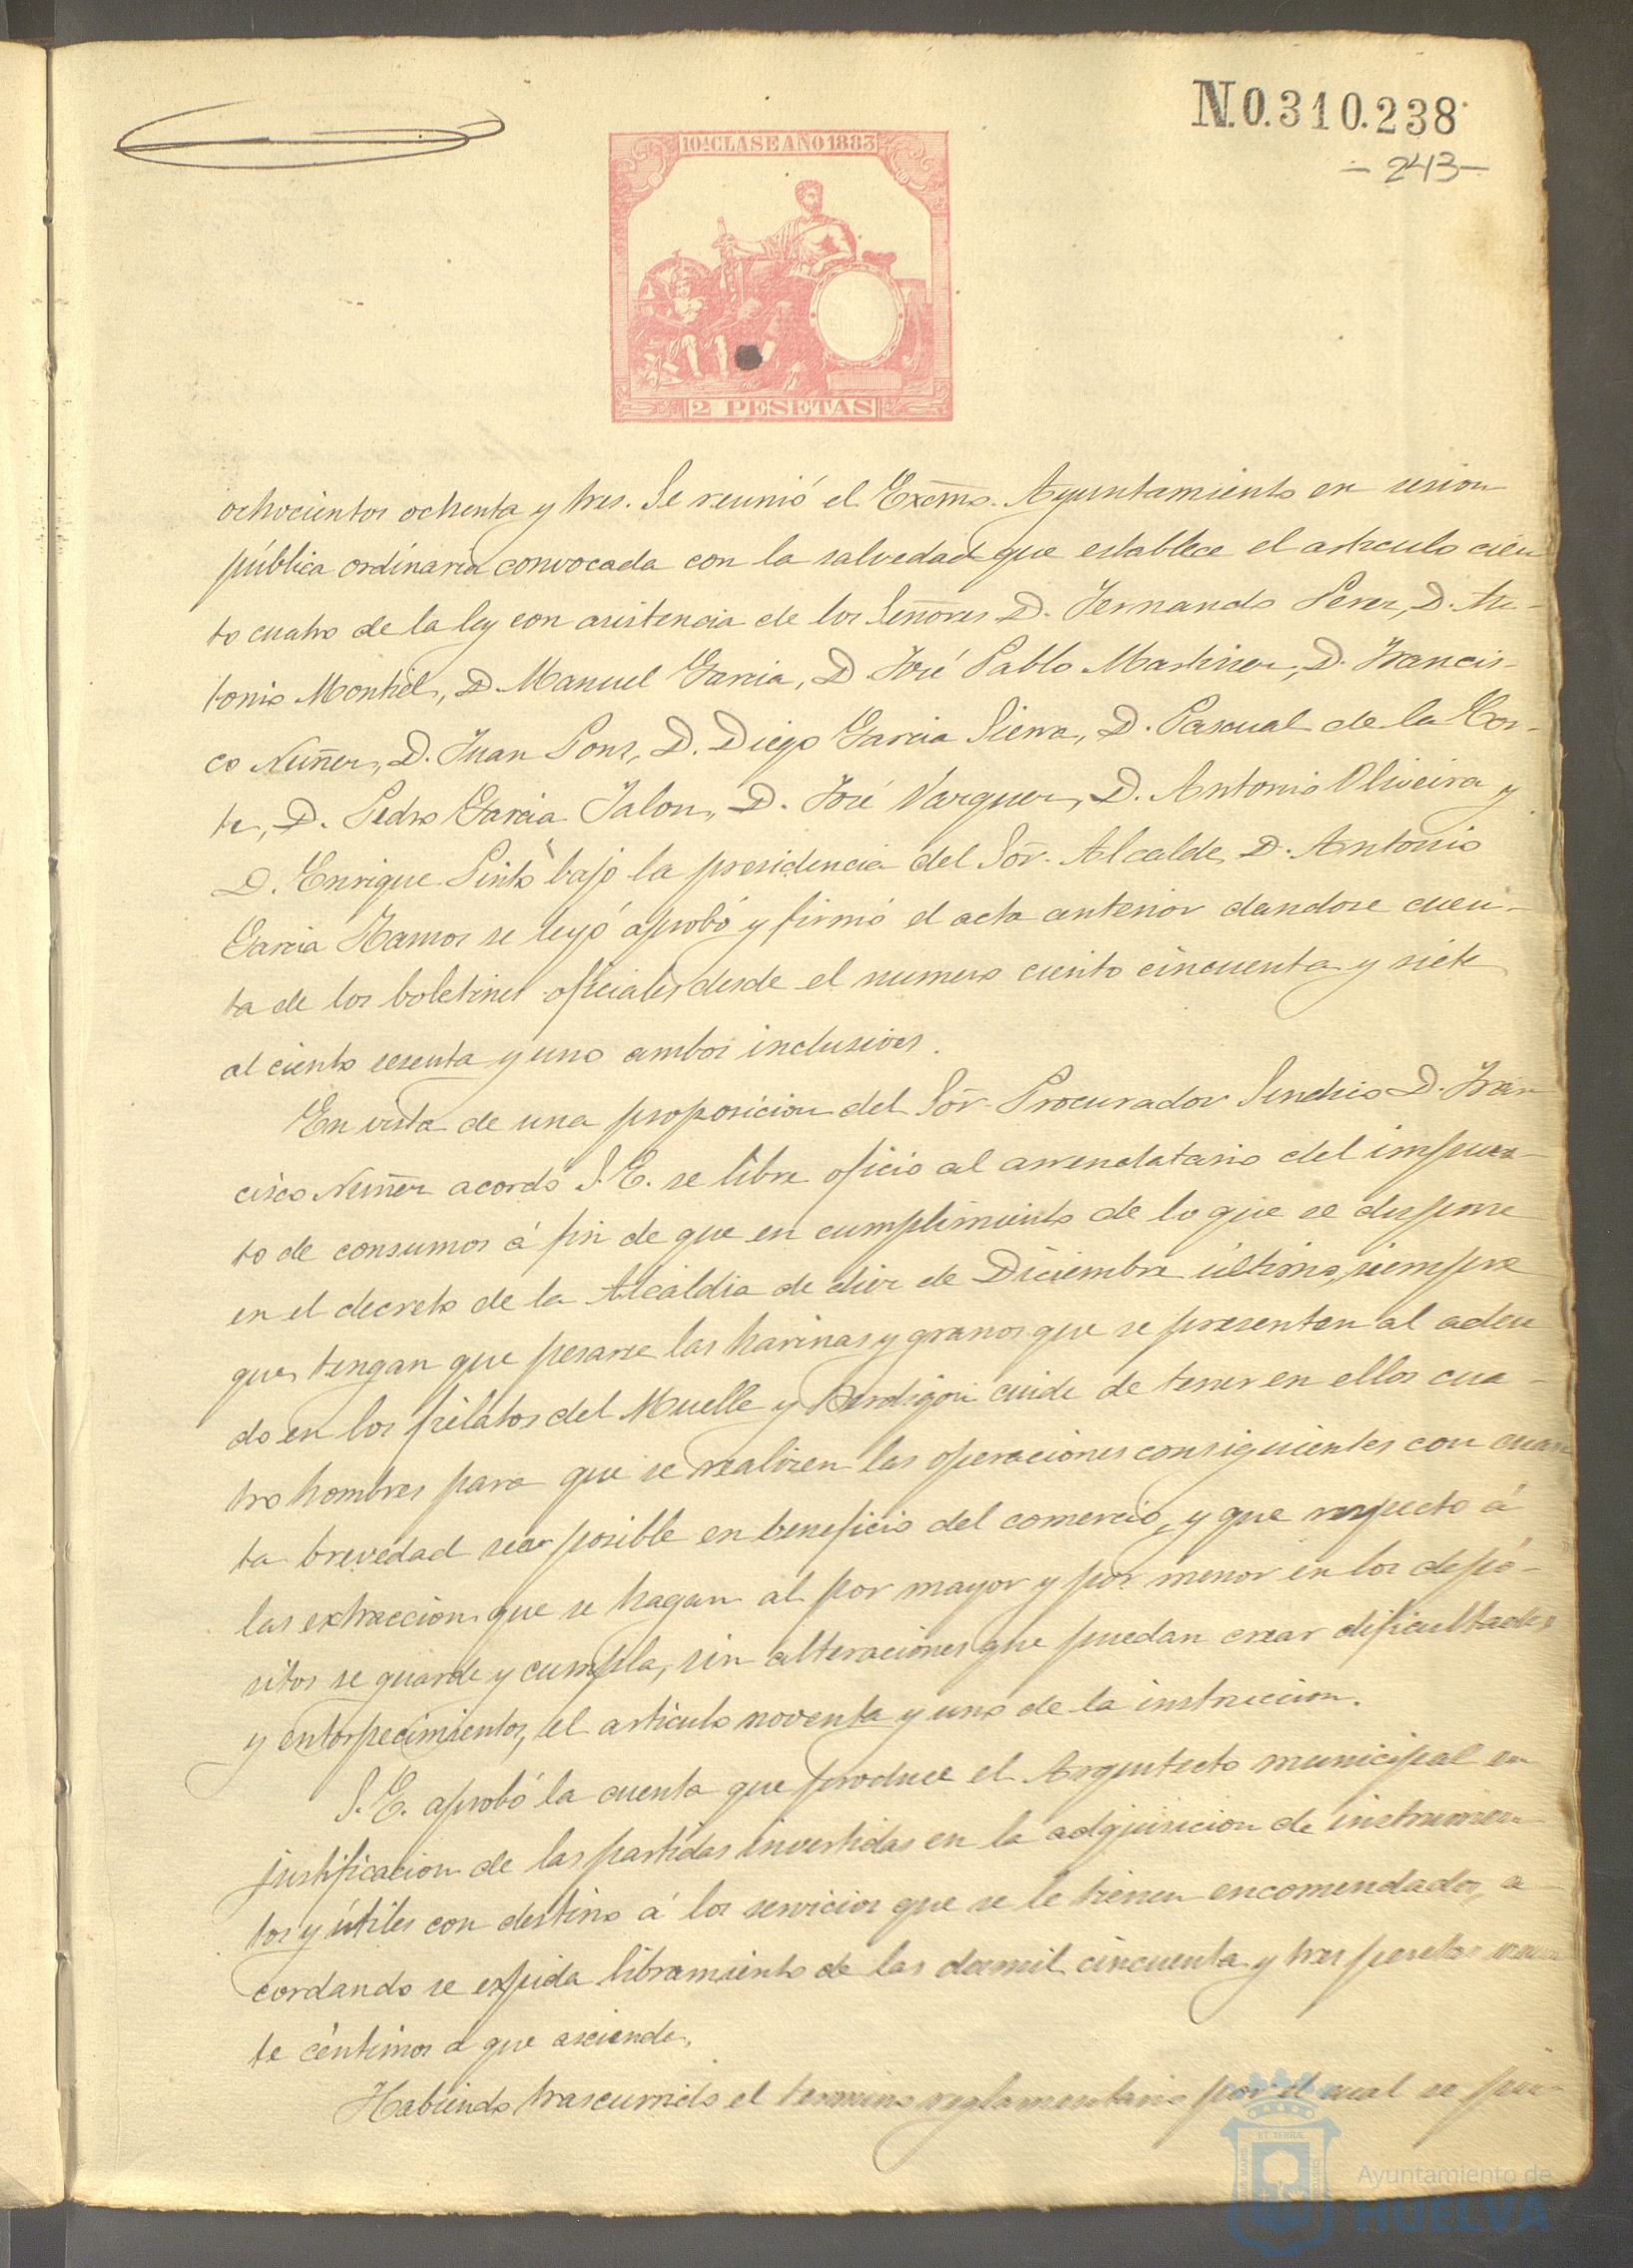 N.0.310.238
- 243 -
10ª CLASE AÑO 1883
2 PESETAS
ochocientos ochenta y tres. Se reunió el Excmo. Ayuntamiento en sesion
pública ordinaria convocada con la salvedad que establece el articulo cien
to cuatro de la ley con asistencia de los Señores D. Fernando Perez, D. An-
tonio Montiel, D. Manuel Garcia, D. José Pablo Martinez, D. Francis-
co Nuñez, D. Juan Pons, D. Diego Garcia Sierra, D. Pascual de la Cor-
te, D. Pedro Garcia Jalon, D. José Vazquez, D. Antonio Oliveira y
D. Enrique Pinto bajo la presidencia del Sor. Alcalde, D. Antonio
Garcia Ramos se leyó aprobó y firmó el acta anterior dandose cuen-
ta de los boletines oficiales desde el numero ciento cincuenta y siete
al ciento sesenta y uno ambos inclusives.
En vista de una proposicion del Sor. Procurador Sindico D. Fran
cisco Nuñez acordó S.E. se libre oficio al arrendatario del impues-
to de consumos á fin de que en cumplimiento de lo que se dispone
en el decreto de la Alcaldia de diez de Diciembre último, siempre
que tengan que pesarse las harinas y granos que se presenten al adeu
do en los fielatos del Muelle y cuide de tener en ellos cua-
tro hombres para que se realizen las operaciones consiguientes con cuan
ta brevedad sea posible en beneficio del comercio, y que respecto á
las extraccion que se hagan al por mayor y por menor en los depó-
sitos se guarde y cumpla, sin alteraciones que puedan crear dificultades
y entorpecimientos, el articulo noventa y uno de la instruccion.
S.E. aprobó la cuenta que produce el Arquitecto municipal en
justificacion de las partidas invertidas en la adquisicion de instrumen-
tos y útiles con destino á los servicios que se le tienen encomendados, a-
cordando se expida libramiento de las dosmil cincuenta y tres pesetas
te céntimos á que asciende.
Habiendo trascurrido el termino reglamentario por el cual se pu-
ET TERRÆ
Ayuntamiento de
HUELVA